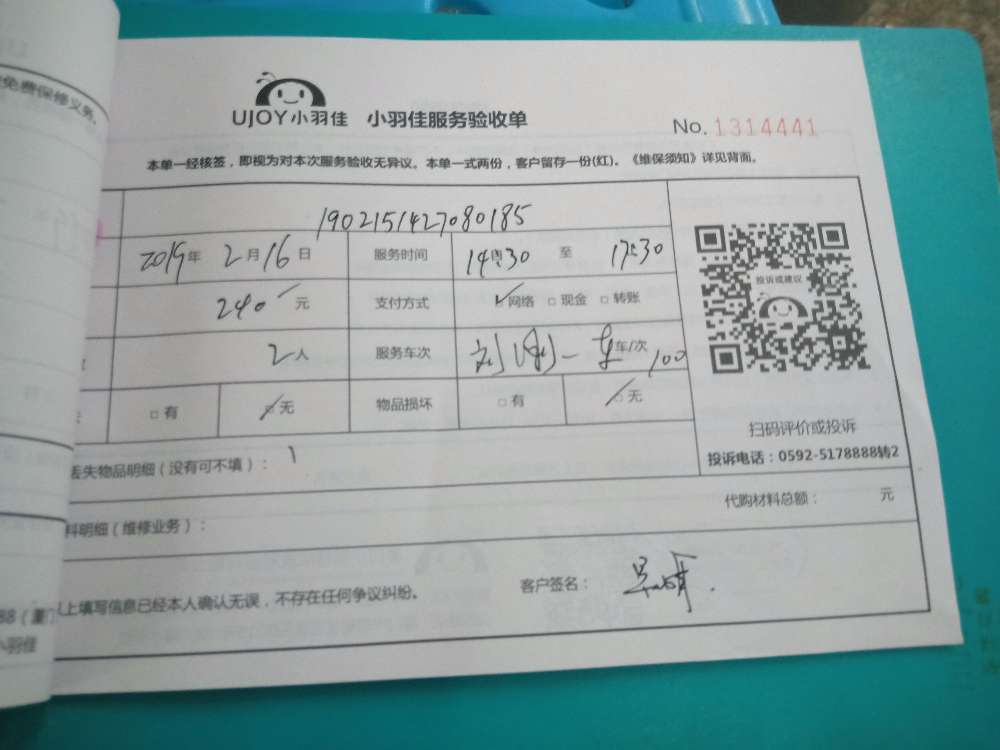 免费保修义务。
UJOY小羽佳 小羽佳服务验收单
No. 1314441
本单一经核签，即视为对本次服务验收无异议。本单一式两份，客户留存一份(红)。《维保须知》详见背面。
1902151427080185
2019年 2月16日 服务时间 14:30 至 17:30
投诉或建议
240 元 支付方式 ✓网络 □现金 □转账
2人 服务车次 车/次 100
□有 □无 物品损坏 □有 □无
扫码评价或投诉
投诉电话：0592-5178888转2
丢失物品明细（没有可不填）：
代购材料总额： 元
料明细（维修业务）：
上填写信息已经本人确认无误，不存在任何争议纠纷。 客户签名：
88（厦门
小羽佳